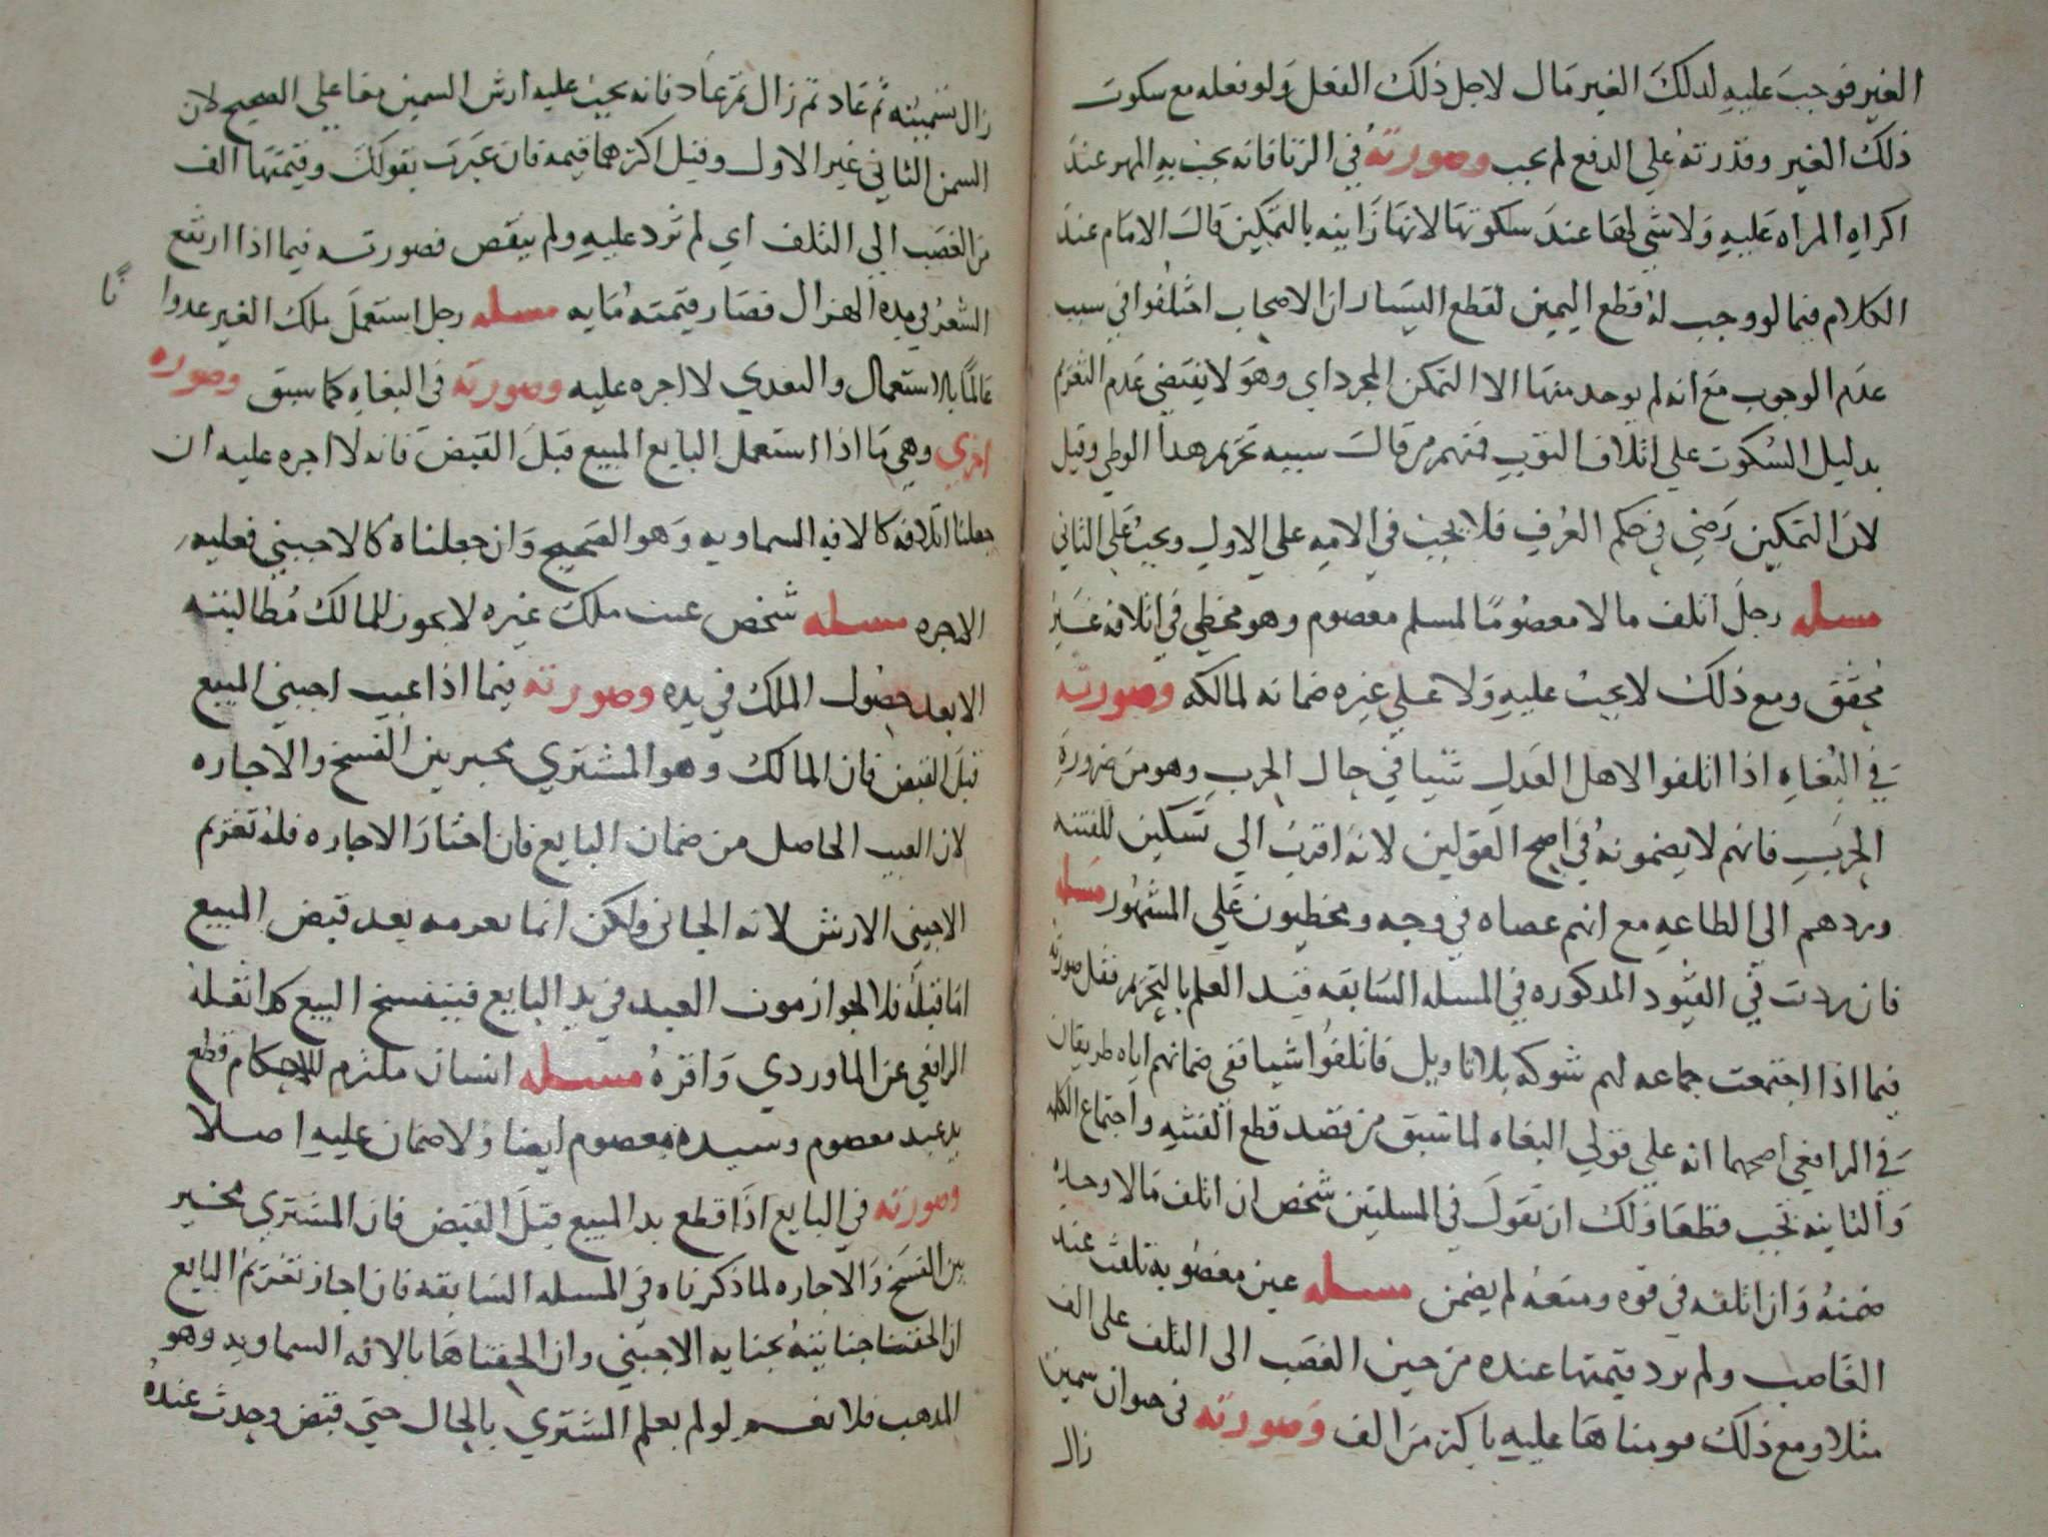 الغير فوجب عليه لذلك الغير مال لاجل ذلك الفعل ولو فعله مع سكوت
ذلك الغير وقدرته على الدفع لم يجب وصورته في الزنا فانه يجب به المهر عند
اكراه المراه عليه ولا شي لها عند سكوتها لانها زانيه بالتمكين قال الامام عند
الكلام فيما لو وجب له قطع اليمين لقطع اليسار ان الاصحاب اختلفوا في سبب
عدم الوجوب مع انه لم يوجد منها الا التمكن المجرد اي وهو لا يقتضي عدم التغريم
بدليل السكوت على اتلاف الثوب فمنهم من قال سببه تحريم هذا الوطي وقيل
لان التمكين رضى في حكم العرف فلا يجب في الامه على الاول ويجب على الثاني
مسله رجل اتلف مالا معصوما لمسلم معصوم وهو مخطي في اتلافه غير
محقق ومع ذلك لا يجب عليه ولا على غيره ضمانه لمالكه وصورته
في البغاه اذا اتلفوا لاهل العدل شيا في حال الحرب وهو من ضرورة
الحرب فانهم لا يضمونه في اصح القولين لانه اقرب الى تسكين للفتنه
وردهم الى الطاعه مع انهم عصاه في وجه ومخطيون على المشهور مسله
فان زدت في القيود المذكوره في المسله السابقه قيد العلم بالتحريم فقل صورته
فيما اذا اجتمعت جماعه لهم شوكه بلا تاويل فاتلفوا شيا ففي ضمانهم اياه طريقان
في الرافعي اصحهما انه على قولي البغاه لما سبق من قصد قطع الفتنه واجتماع الكلمه
والثانيه تجب قطعا ولك ان تقول في المسلتين شخص ان اتلف مالا وحده
ضمنه وان اتلفه في قوه ومنعه لم يضمن مسله عين مغصوبه تلفت عند
الغاصب ولم تزد قيمتها عنده من حين الغصب الى التلف على الف
مثلا ومع ذلك قومناها عليه باكثر من الف وصورته في حيوان سمين
زال
زال سمنه ثم عاد ثم زال ثم عاد فانه يجب عليه ارش السمنين معا على الصحيح لان
السمن الثاني غير الاول وقيل اكثرهما قيمه فان عبرت بقولك وقيمتها الف
من الغصب الى التلف اي لم تزد عليه ولم ينقص فصورته فيما اذا ارتفع
السعر في مده الهزال فصار قيمته مايه مسله رجل استعمل ملك الغير عدوانا
عالما بالاستعمال والتعدي لا اجره عليه وصورته في البغاه كما سبق وصوره
اخري وهي ما اذا استعمل البايع المبيع قبل القبض فانه لا اجره عليه ان
جعلنا اتلافه كالافه السماويه وهو الصحيح وان جعلناه كالاجنبي فعليه
الاجره مسله شخص عيب ملك غيره لا يجوز للمالك مطالبته
الا بعد حصول الملك في يده وصورته فيما اذا عيب اجنبي المبيع
قبل القبض فان المالك وهو المشتري مخير بين الفسخ والاجاره
لان العيب الحاصل من ضمان البايع فان اختار الاجاره فله تغريم
الاجنبي الارش لانه الجاني ولكن انما يغرمه بعد قبض المبيع
اما قبله فلا لجواز موت العبد في يد البايع فينفسخ البيع كذا نقله
الرافعي عن الماوردي واقره مسله انسان ملتزم للاحكام قطع
يد عبد معصوم وسيده معصوم ايضا ولا ضمان عليه اصلا
وصورته في البايع اذا قطع يد المبيع قبل القبض فان المشتري مخير
بين الفسخ والاجاره لما ذكرناه في المسله السابقه فان اجاز تغريم البايع
ان الحقنا جنايته بجنايه الاجنبي وان الحقناها بالافه السماويه وهو
المذهب فلا نعم لو لم يعلم المشتري بالحال حتي قبض وحدث عنده